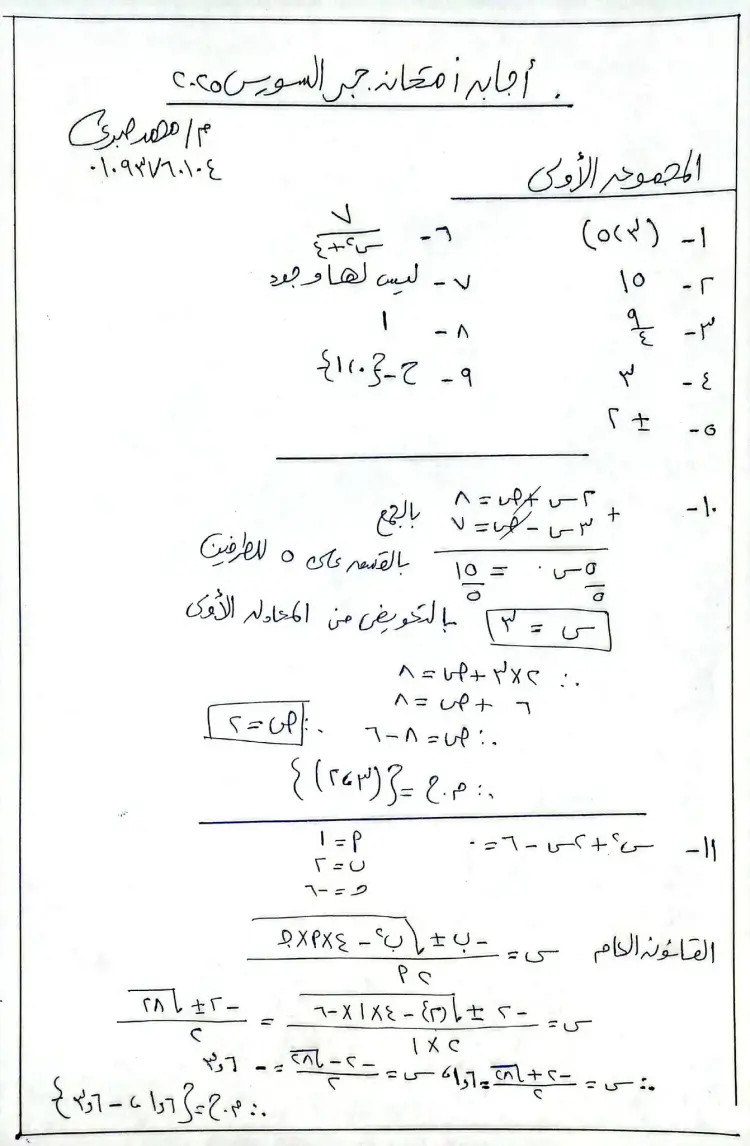 أجابه امتحان جبر السويس ٢٠٢٥
م/ محمد صبرى
٠١٠٩٣٧٦٠١٠٤
المجموعه الأولى
١- (٣، ٥)
٢- ١٥
٣- ٩/٤
٤- ٣
٥- ± ٢
٦- ٧/(س٢+٤)
٧- ليس لها وجود
٨- ١
٩- ح-{٠، ١}
١٠- ٢س+ص=٨
+ ٣س-ص=٧ بالجمع
٥س/٥ = ١٥/٥ بالقسمه على ٥ للطرفين
س = ٣ بالتعويض من المعادله الأولى
∴ ٢×٣+ص=٨
٦ +ص=٨
∴ ص=٨-٦ ∴ ص=٢
∴ م.ح={(٣، ٢)}
١١- س٢+٢س-٦=٠
م=١
ب=٢
ح=-٦
القانون العام س= (-ب±√(ب٢-٤×م×ح))/٢م
س= (-٢±√((٢)٢-٤×١×-٦))/(٢×١) = (-٢±√٢٨)/٢
∴ س= (-٢+√٢٨)/٢=١,٦، س= (-٢-√٢٨)/٢=-٣,٦
∴ م.ح={١,٦، -٣,٦}